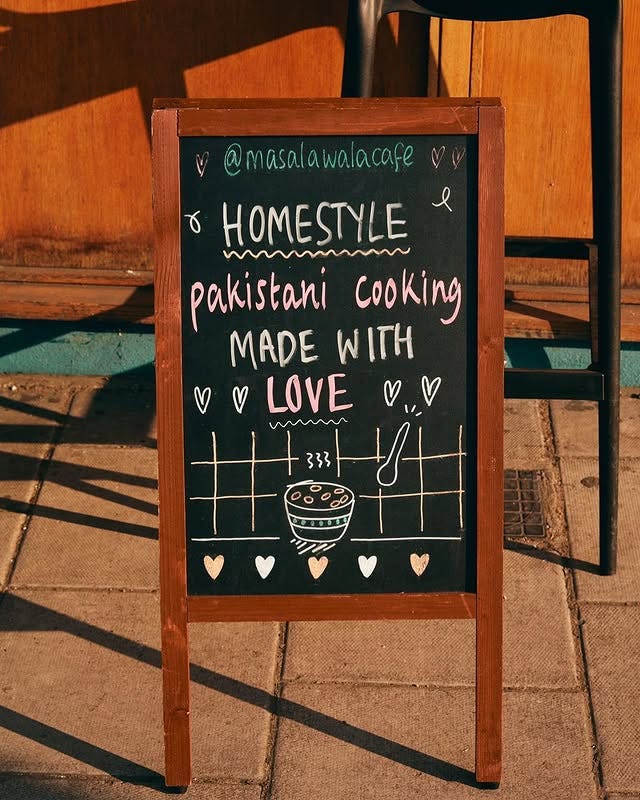 @masalawalacafe
HOMESTYLE
pakistani cooking
MADE WITH
LOVE